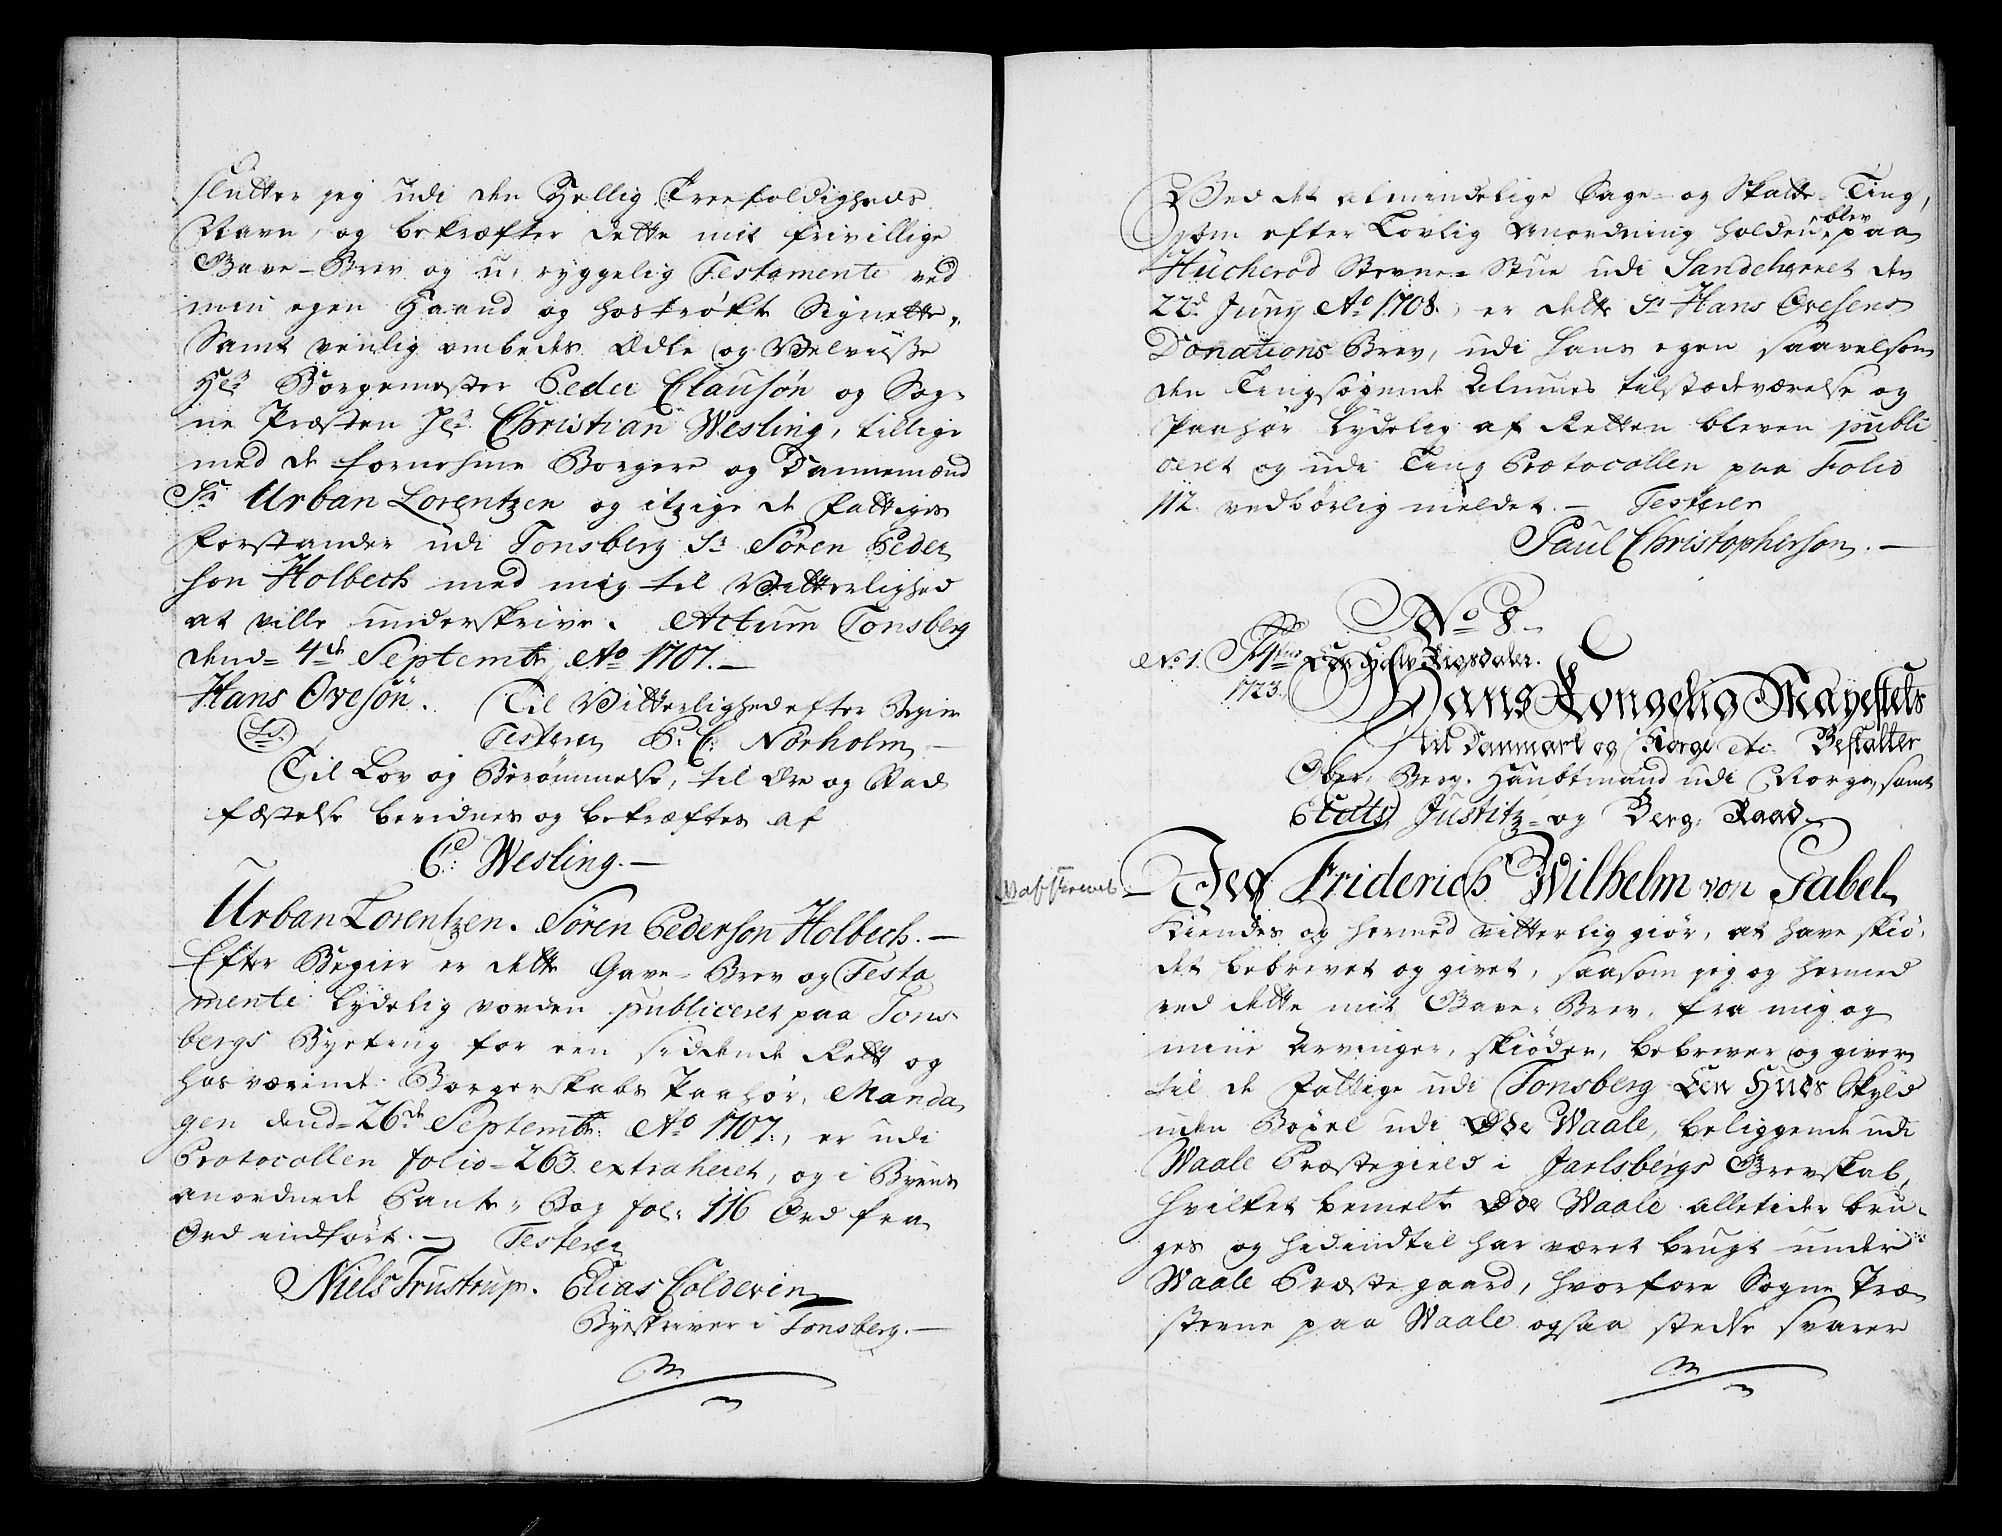 slutter jeg udi den Hellig Treefoldigheds
Navn, og bekræfter dette mit frivillige
Gave-Brev og u-ryggelig Testamente ved
min egen Haand og hoströkte Signette,
Samt venlig ombedes Ædle og Velviise
Hr. Borgemester Peder Clausøn og Sog-
ne Præsten Hr. Christian Wesling, tillige
med de fornehme Borgere og Dannemænd
Sr. Urban Lorentzen og itzige de Fattiges
Forstander udi Tonsberg Sr. Sören Peder
son Holbech med mig til Vitterlighed
at ville underskrive. Actum Tonsberg
dend 4de Septembr. Ao 1707.—
Hans Ovesøn. Til Vitterlighed efter Begier
Testerer P. C. Nörholm
Til Lov og Berömmelse, til Ære og Stad
fæstelse bevidnes og bekræftes af
C: Wesling.—
Urban Lorentzen. Sören Pederson Holbech.—
Efter Begier er dette Gave-Brev og Testa
mente lydelig vorden publiceret paa Tons
bergs Byeting for een siddende Rett og
hosværende Borgerskabs Paahør, Manda
gen dend 26de Septembr: Ao 1707., er udi
Protocollen folio 263 extraheret, og i Byens
anordnede Pante-Bog fol: 116 Ord fra
Ord indført.— Testerer
Niels Trustrup. Elias Colderin
Byeskriver i Tonsberg.—
Ved det almindelige Sage- og Skatte-Ting,
som efter Lovlig Anordning holden blev paa
Hucherod Stevne-Stue udi Sandeherret den
22d. Juny Ao 1708., er dette Sr. Hans Ovesens
Donations Brev, udi hans egen saavelsom
den Tingsøgende Almues tilstedeværelse og
Paahør lydelig af Retten bleven publi
ceret og udi Ting Protocollen paa Folio
112. vedbörlig meldet.— Testerer
Paul Christopherson.—
No 8.
No 1. 1723. Een Halv Rigsdaler.
Hans Kongelig Mayestets
til Danmark og Norge etc. Bestalter
Ober-Berg-Haubtmand udi Norge, samt
Etats Justitz- og Berg-Raad
Jeg Friderich Wilhelm von Gabel
Kiendes og hermed vitterlig giør, at have skiö-
det bebrevet og givet, saasom jeg og hermed
ved dette mit Gave-Brev, fra mig og
mine Arvinger, skiöder, bebrever og giver
til de Fattige udi Tonsberg Een Huds Skyld
uden Böxel udi Øde Waale, beliggende udi
Waale Præstegield i Jarlsbergs Grevskab,
hvilket bemelte Øde Waale alletider bru-
ges og hidindtil har været brugt under
Waale Præstegaard, hvorfore Sogne Præ
sterne paa Waale ogsaa stedse svarer